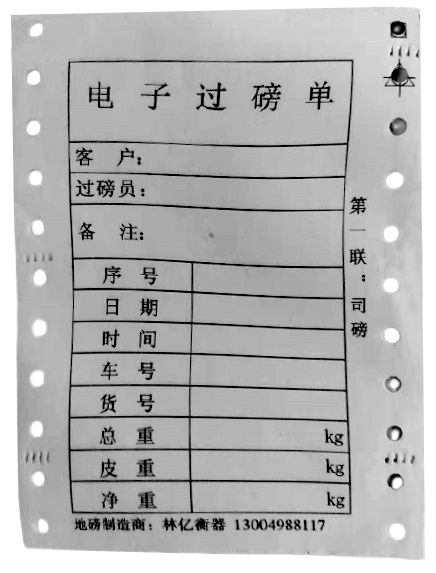 电子过磅单
客 户:
过磅员:
备 注:
序 号
日 期
时 间
车 号
货 号
总 重 kg
皮 重 kg
净 重 kg
第一联:司磅
地磅制造商: 林亿衡器 13004988117